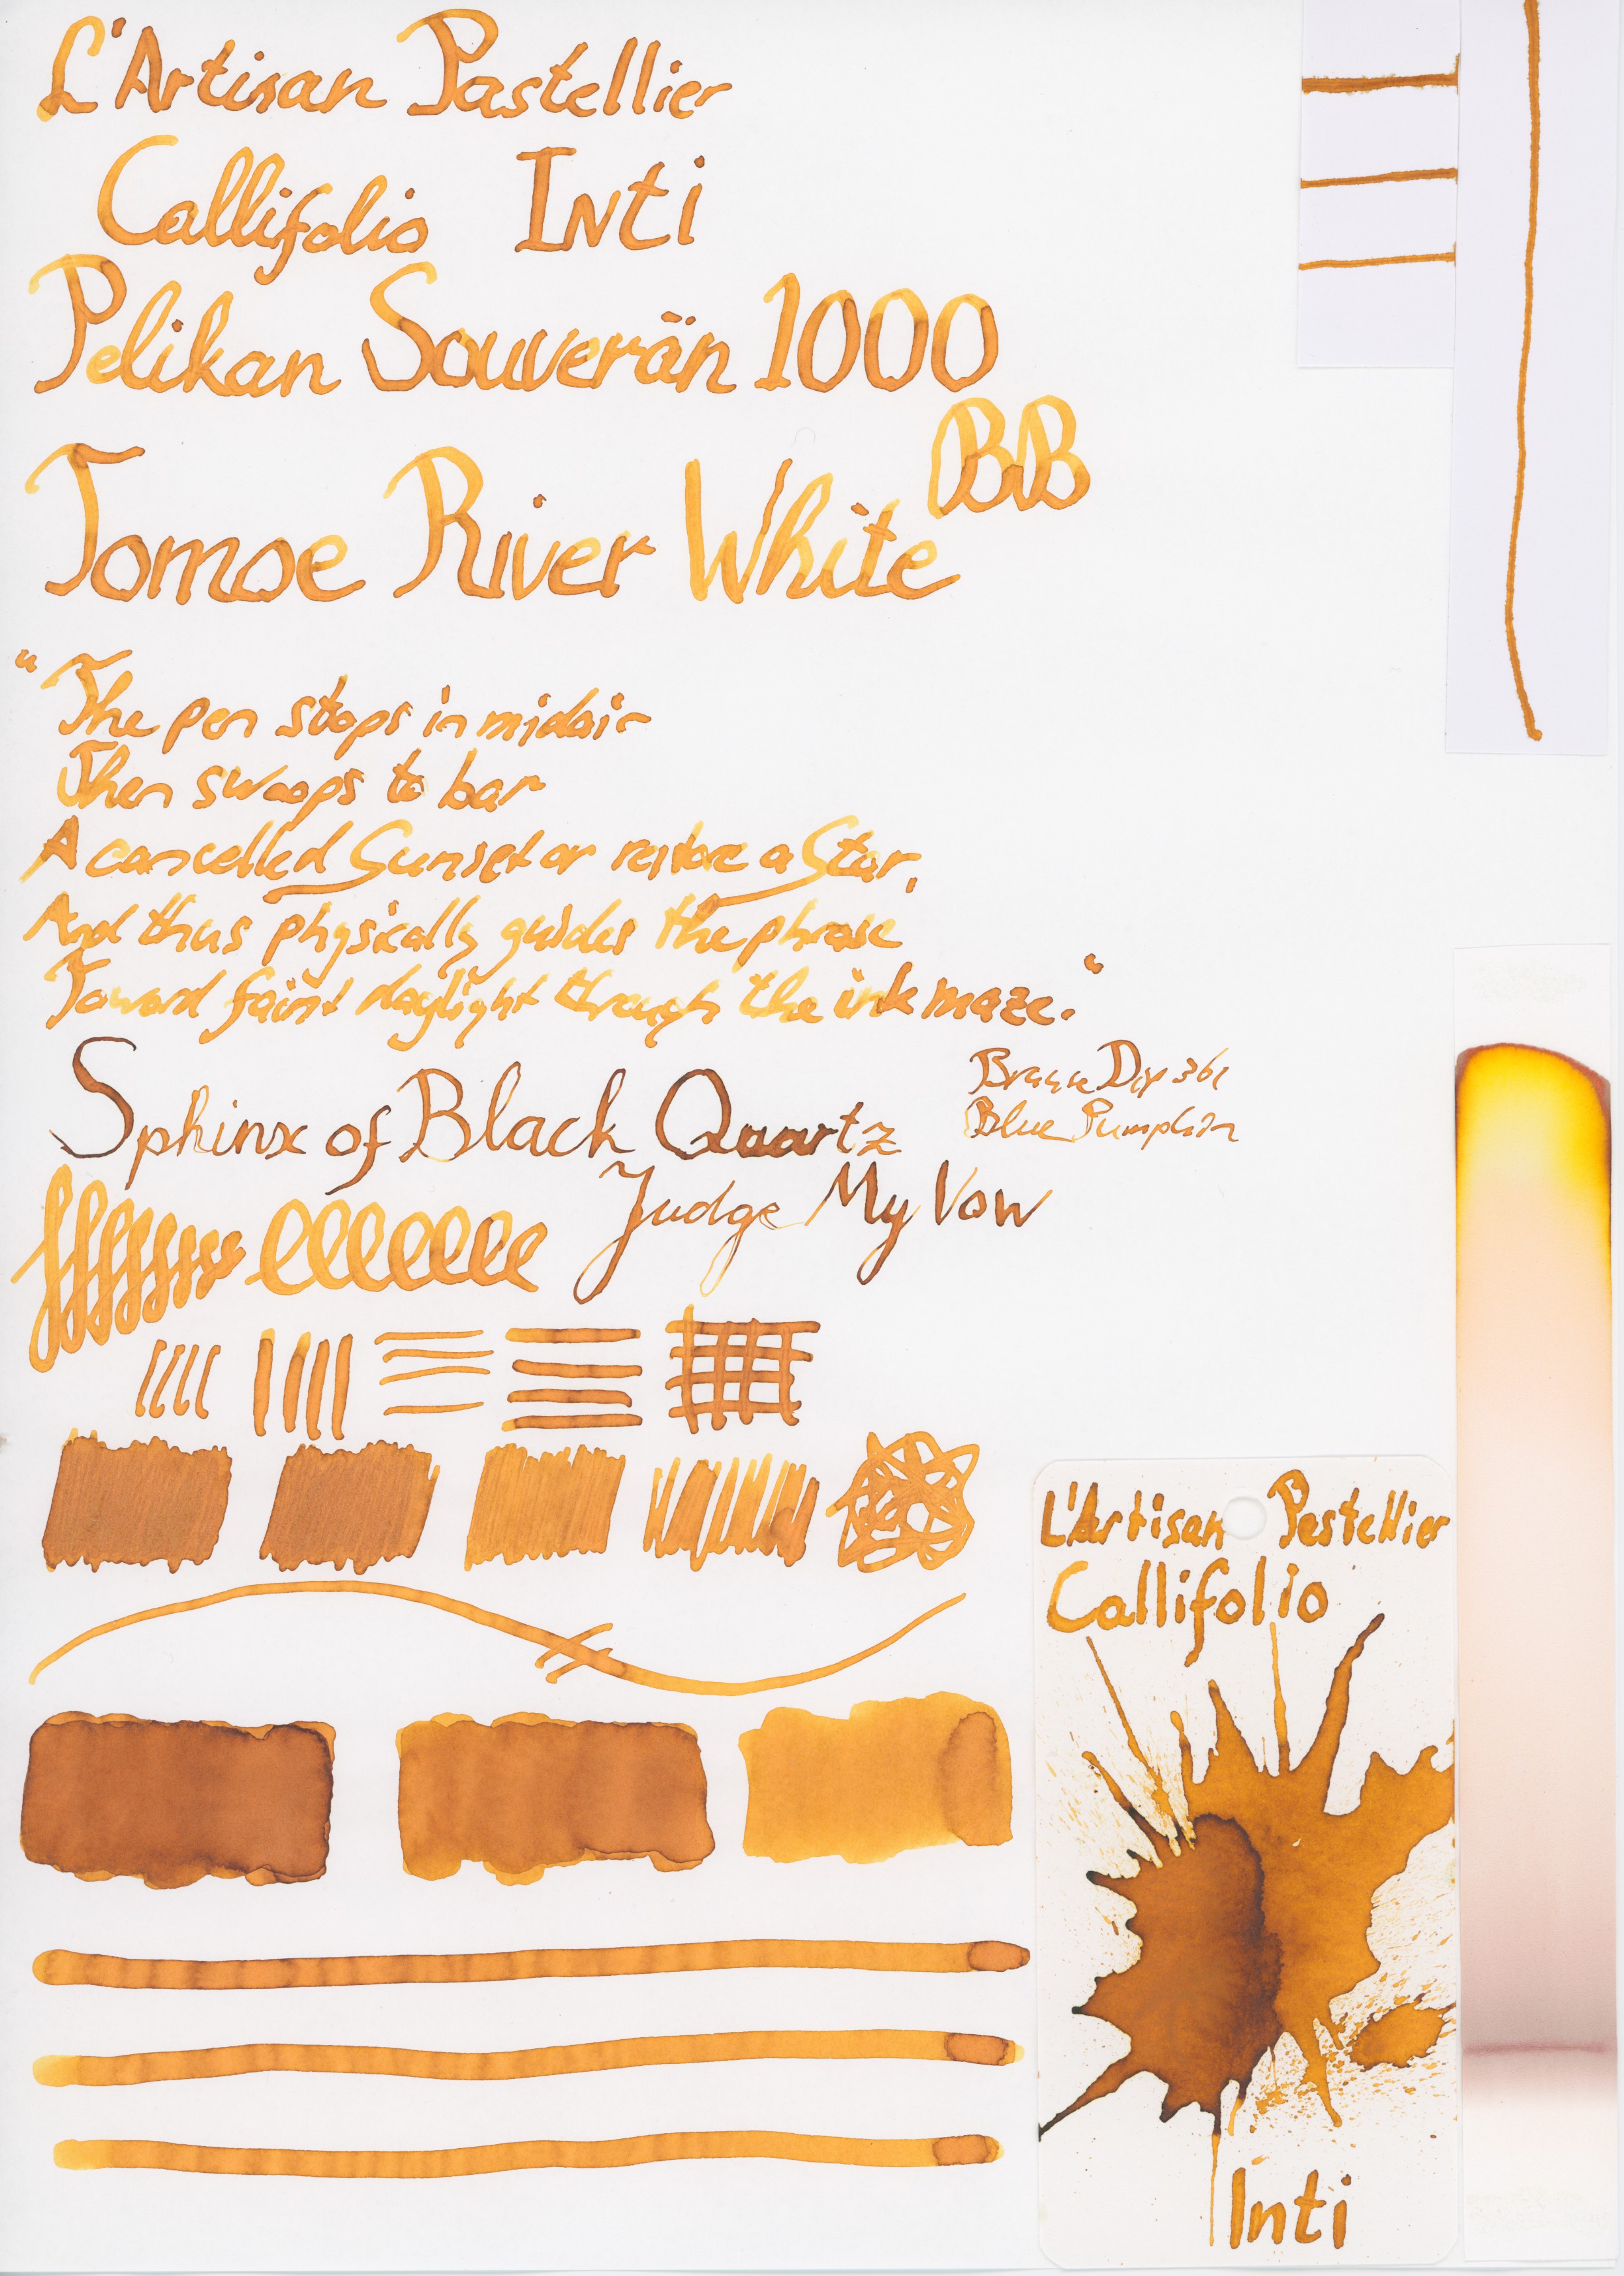 L'Artisan Pastellier
Callifolio Inti
Pelikan Souverän 1000
BB
Tomoe River White
"The pen stops in midair
Then swoops to bar
A cancelled Sunset or restore a Star,
And thus physically guides the phrase
Toward faint daylight through the ink maze."
Sphinx of Black Quartz
Judge My Vow
Brause Dip 361
Blue Pumpkin
L'Artisan Pestellier
Callifolio
Inti